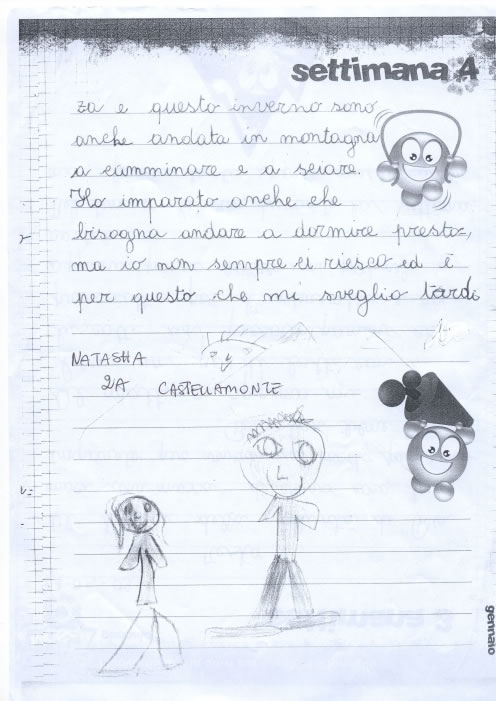 settimana 4
za e questo inverno sono
anche andata in montagna
a camminare e a sciare.
Ho imparato anche che
bisogna andare a dormire presto,
ma io non sempre ci riesco ed è
per questo che mi sveglio tardi
NATASHA
2A CASTELLAMONTE
gennaio